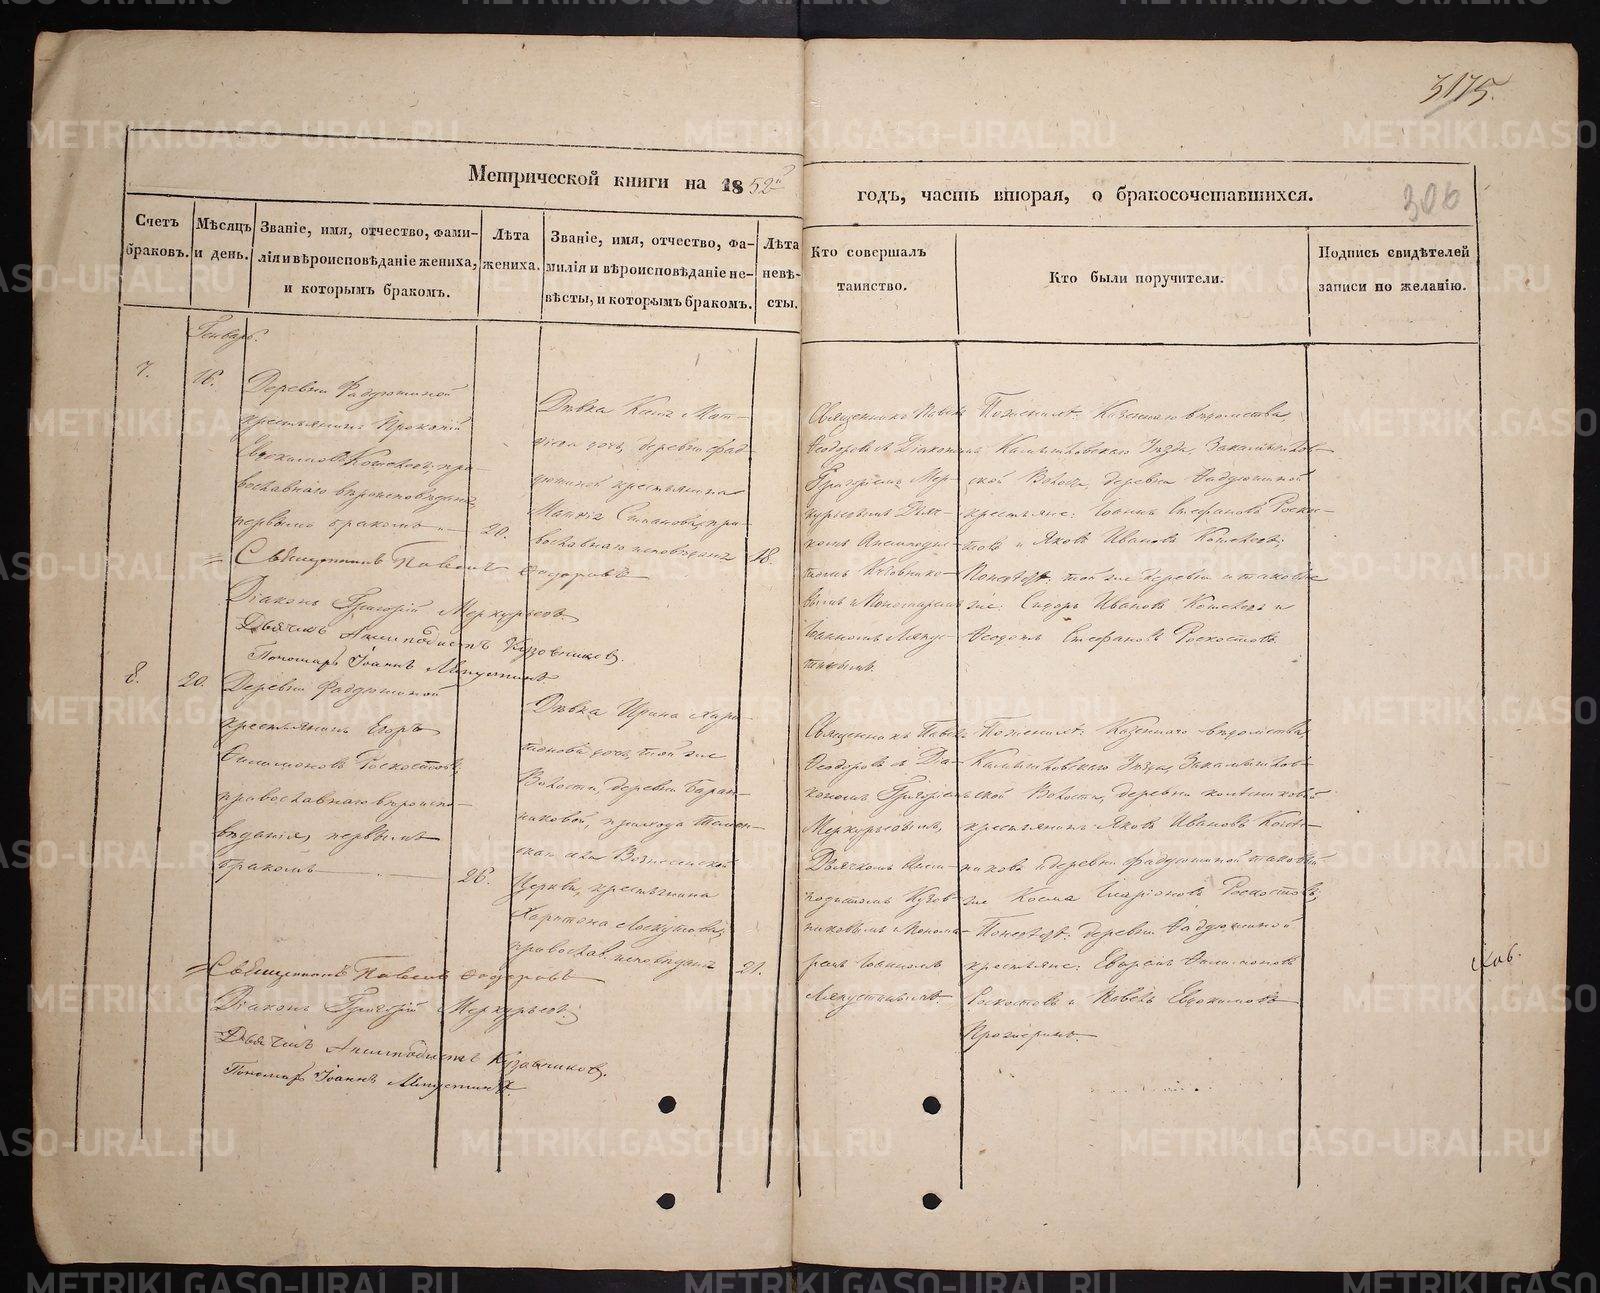 3175.
306
Метрической книги на 1852й
годъ, часть вторая, о бракосочетавшихся.
Счетъ браковъ.
Мѣсяцъ и день.
Званіе, имя, отчество, фами-
лія и вѣроисповѣданіе жениха,
и которымъ бракомъ.
Лѣта
жениха.
Званіе, имя, отчество, фа-
милія и вѣроисповѣданіе не-
вѣсты, и которымъ бракомъ.
Лѣта
невѣ-
сты.
Кто совершалъ
таинство.
Кто были поручители.
Подпись свидѣтелей
записи по желанію.
Генварь.
7.
16.
Деревни Фадюшиной
крестьянинъ Прокопій
Евдокимовъ Кошелевъ, пра-
вославнаго вѣроисповѣданія
первымъ бракомъ
20.
Дѣвка
дочь, деревни Фад-
юшиной крестьянина
православнаго исповѣданія
18.
Священникъ Павелъ
Ѳеодоровъ съ Діакономъ
Григоріемъ Мер-
курьевымъ Дьяч-
комъ Анемподис-
томъ Кузовнико-
вымъ и Пономаремъ
Іоанномъ Ляпус-
тинымъ.
По женихѣ: Казеннаго вѣдомства,
Камышловскаго Уѣзда, Закамышлов-
ской Волости, деревни Фадюшиной
крестьяне: Іоаннъ Стефановъ Роско-
стовъ и Яковъ Ивановъ Кошелевъ;
По невѣстѣ: той же деревни и таковые
же: Сидоръ Ивановъ Кошелевъ и
Ѳеодотъ Стефановъ Роскостовъ.
Священникъ Павелъ Ѳеодоровъ
Діаконъ Григорій Меркурьевъ
Дьячекъ Анемподистъ Кузовниковъ.
Пономарь Іоаннъ Ляпустинъ
8.
20.
Деревни Фадюшиной
крестьянинъ Егоръ
Филимоновъ Роскостовъ,
православнаго вѣроиспо-
вѣданія, первымъ
бракомъ
26.
Дѣвка Ирина Хари-
тонова дочь, той же
Волости, деревни Баран-
никовой, прихода
Вознесенской
Церкви, крестьянина
Харитона
православ. исповѣданія
21.
Священникъ Павелъ
Ѳеодоровъ съ Діа-
кономъ Григоріемъ
Меркурьевымъ,
Дьячкомъ Анем-
подистомъ Кузов-
никовымъ и Понома-
ремъ Іоанномъ
Ляпустинымъ.
По женихѣ: Казеннаго вѣдомства
Камышловскаго Уѣзда, Закамышлов-
ской Волости, деревни
крестьянинъ Яковъ Ивановъ
и деревни Фадюшиной таковый
же Косма Иларіоновъ Роскостовъ;
По невѣстѣ: деревни Фадюшиной
крестьяне: Ефремъ Филимоновъ
Роскостовъ и Павелъ Евдокимовъ
Священникъ Павелъ Ѳеодоровъ
Діаконъ Григорій Меркурьевъ.
Дьячекъ Анемподистъ Кузовниковъ.
Пономарь Іоаннъ Ляпустинъ.
METRIKI.GASO-URAL.RU